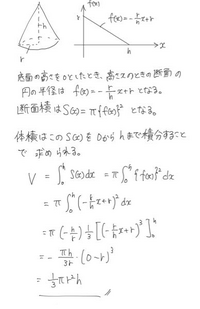 f(x)
h
r
r
f(x)=-\frac{r}{h}x+r
h
x
底面の高さを0といたとき、高さxのときの断面の
円の半径は f(x)=-\frac{r}{h}x+r となる。
断面積は S(x)=π{f(x)}² となる。
体積はこの S(x) を 0 から h まで積分すること
で 求められる。
V = ∫_0^h S(x)dx = π∫_0^h {f(x)}² dx
= π∫_0^h (-\frac{r}{h}x+r)² dx
= π(-\frac{h}{r})\frac{1}{3}[(-\frac{r}{h}x+r)³]_0^h
= -\frac{πh}{3r}・(0-r)³
= \frac{1}{3}πr²h